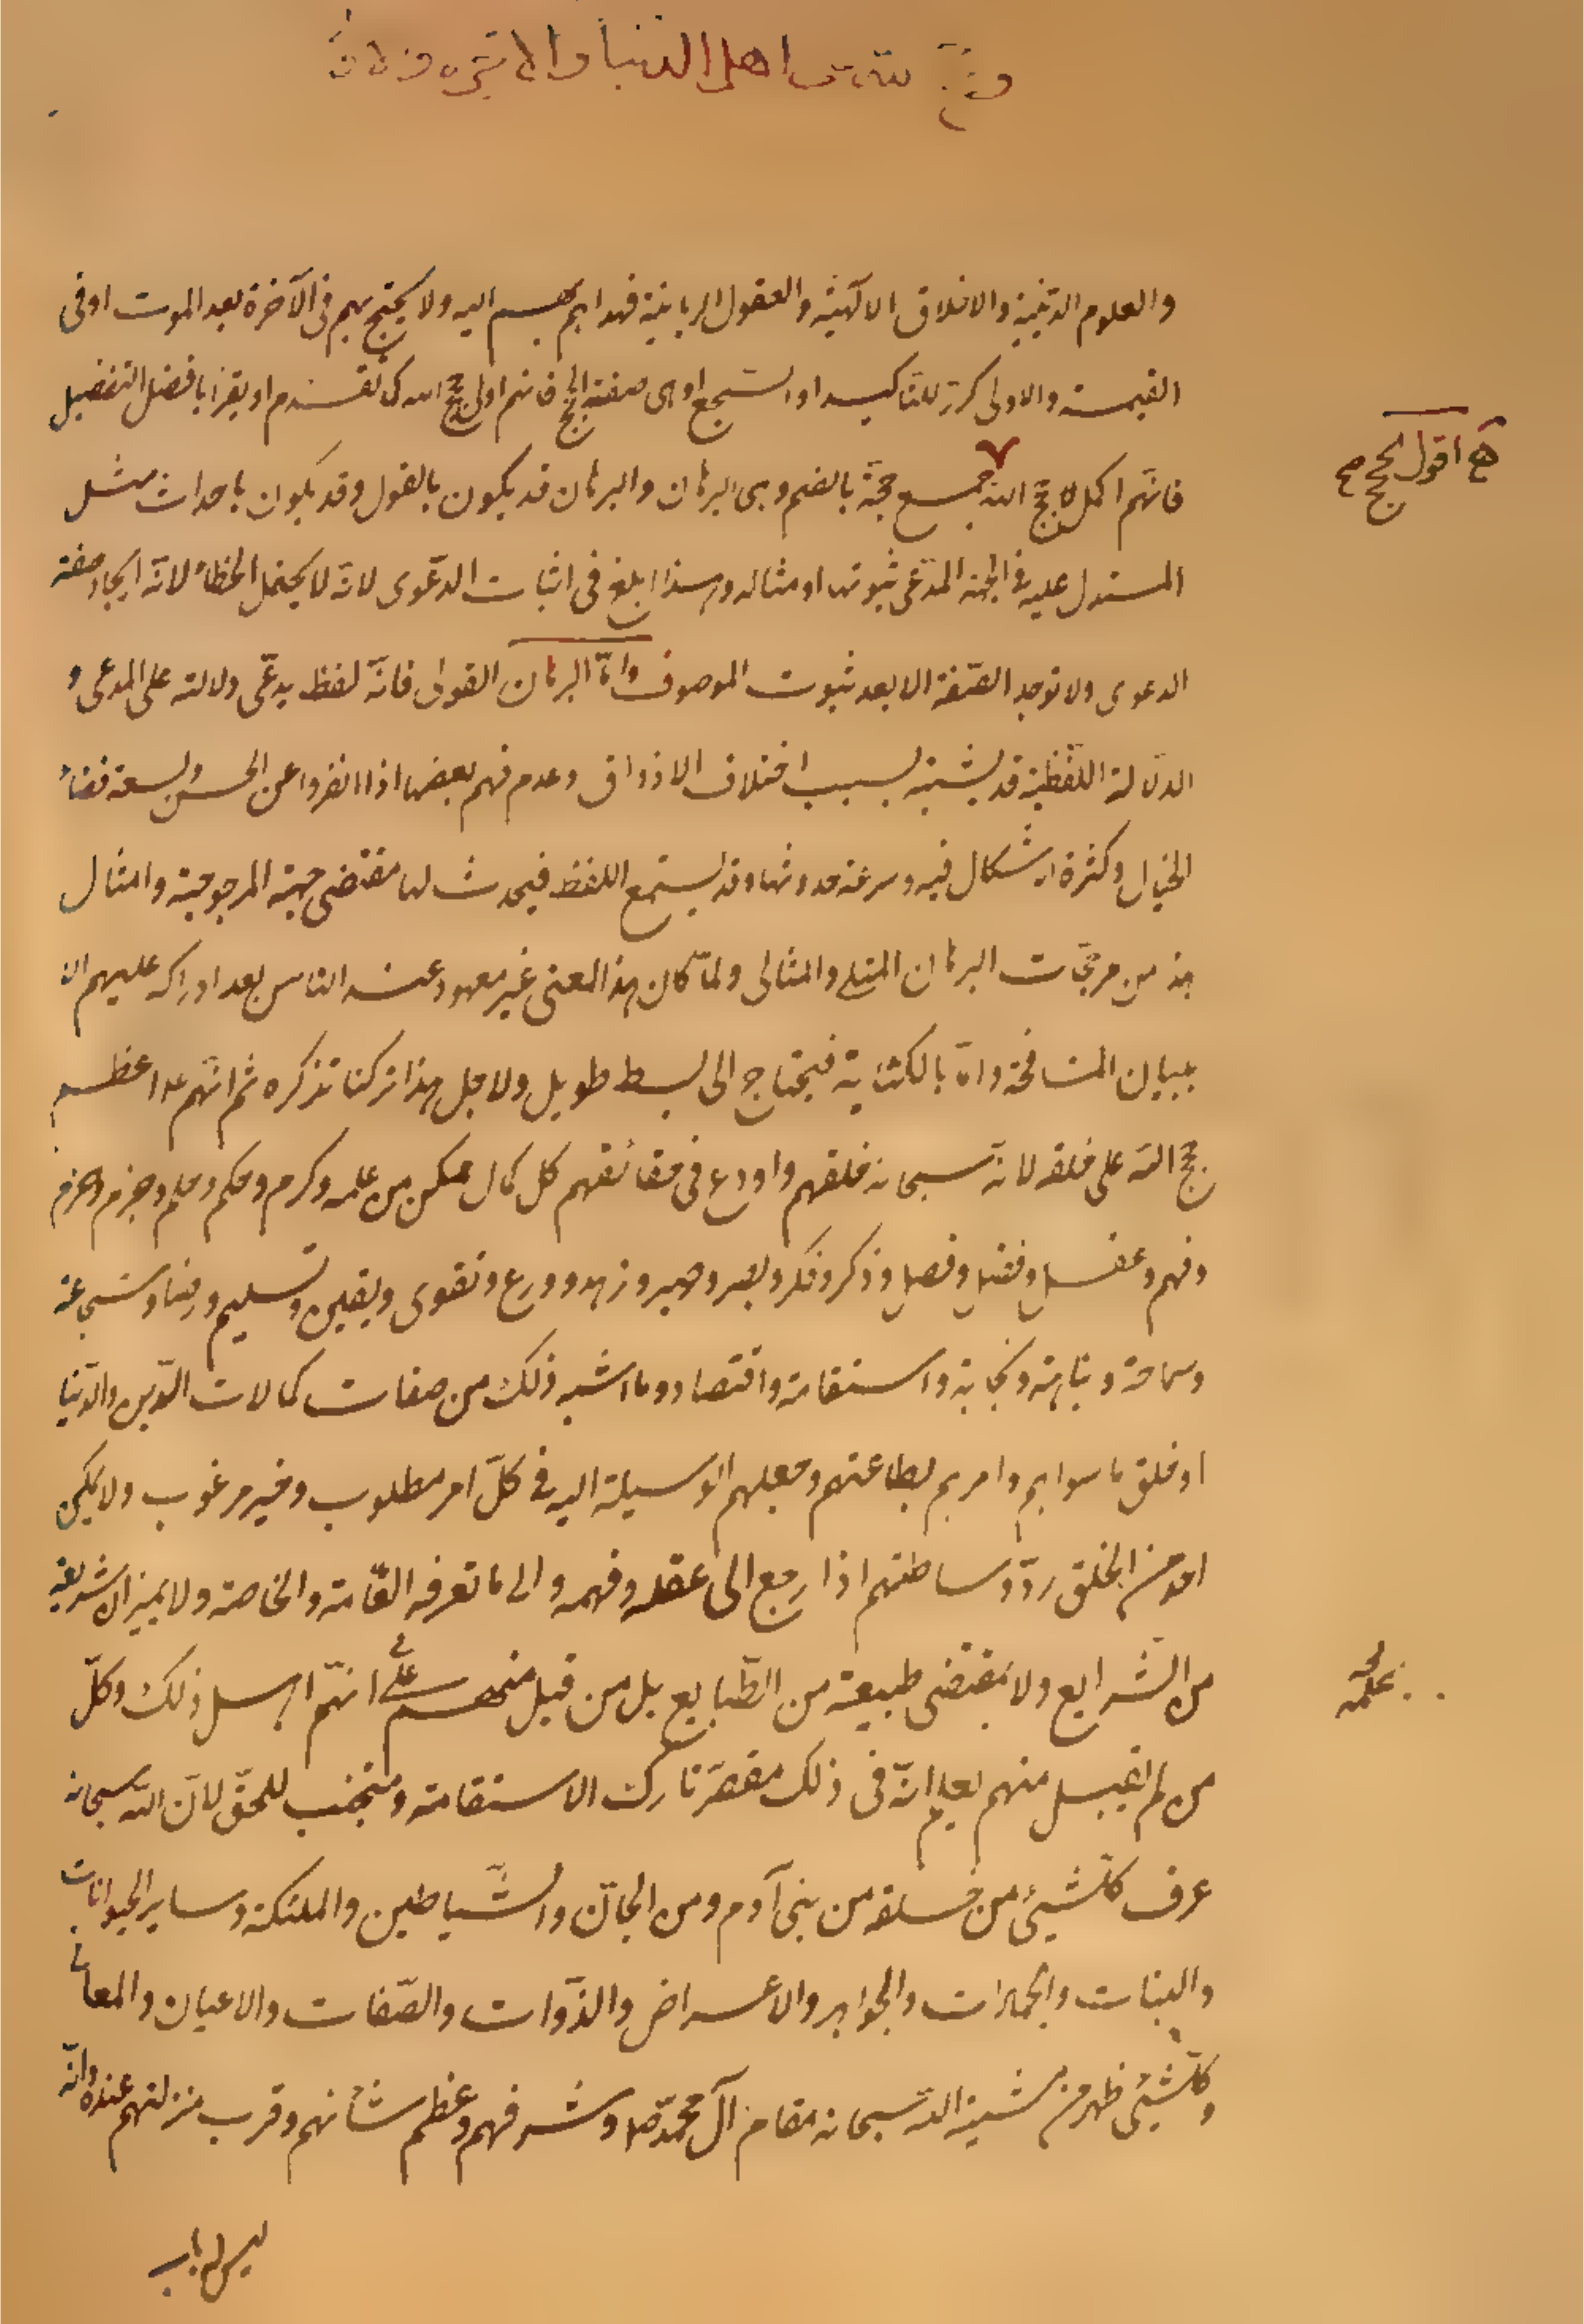 وحجج الله على اهل الدنيا والاخرة والاولى
والعلوم الدينية والاخلاق الالٓهية والعقول الربانية فهداهم بهم اليه ولا يحتج بهم فى الآخرة بعد الموت او فى
القيمة والاولى كرّر للتاكيد او السجع او هى صفة الحجج فانهم اولى حجج الله كما تقدم او يقرأ بافضل التفضيل
فانهم اكمل حجج الله جمع حجة بالضم وهى البرهان والبرهان قد يكون بالقول وقد يكون باحداث مثل
هج اقول الحجج مح
المستدل عليه فى الجهة المدّعى ثبوتها او مثاله وهذا ابلغ فى اثبات الدعوى لانه لا يحتمل الخطأ لانه ايجاد صفة
الدعوى ولا توجد الصّفة الا بعد ثبوت الموصوف وامّا البرهان القولى فانّه لفظ يدعّى دلالته على المدعى و
الدلالة اللفظية قد يشتبه بسبب اختلاف الاذواق وعدم فهم بعضها اذا انفردوا عن الحس ولسعة فضاء
الخيال وكثرة الاشكال فيه وسرعة حدوثها وقد يستمع اللفظ فيحدث لها مقتضى جهة المرجوحية وامثال
هذه من مرجحات البرهان المثلى والمثالى ولمّا كان هذا المعنى غير معهود عند الناس بعد ادراكه عليهم الا
ببيان المشافحة وامّا بالكتابة فيحتاج الى بسط طويل ولاجل هذا تركنا تذكره ثم انهم ع اعظم
حجج الله على خلقه لانه سبحانه خلقهم واودع فى حقائقهم كل كمال ممكن من علم وكرم وحكم وحلم وجزم وعزم
وفهم وعقل وفضل وفصل وذكر وفكر وبصر وصبر وزهد وورع وتقوى ويقين وتسليم ورضا وشجاعة
وسماحة ونباهة ونجابة واستقامة واقتصاد وما اشبه ذلك من صفات كمالات الدّين والدّنيا
اوخلق ما سواهم وامرهم بطاعتهم وجعلهم الوسيلة اليه فى كلّ امر مطلوب وخير مرغوب ولا يمكن
احد من الخلق ردّ وساطتهم اذا رجع الى عقله وفهمه والى ما تعرفه العّامة والخاصة ولا بميزان شريعة
من الشّرايع ولا بمقتضى طبيعة من الطّبايع بل من قبل منهم على انّهم اهل ذلك وكلّ
من لم يقبل منهم يعلم انّه فى ذلك مقصّر تارك الاستقامة ومتجنب للحقّ لانّ الله سبحانه
عرف كلّشيئ من خلقه من بنى آدم ومن الجانّ والشّياطين والملئكة وساير الحيوانات
والنبات والجمادات والجواهر والاعراض والذّوات والصّفات والاعيان والمعانى
وكلّشيئ ظهر من مشية الله سبحانه مقام آل محمّد ص وشرفهم وعظم شأنهم وقرب منزلتهم عنده وانّه
ليس له باب